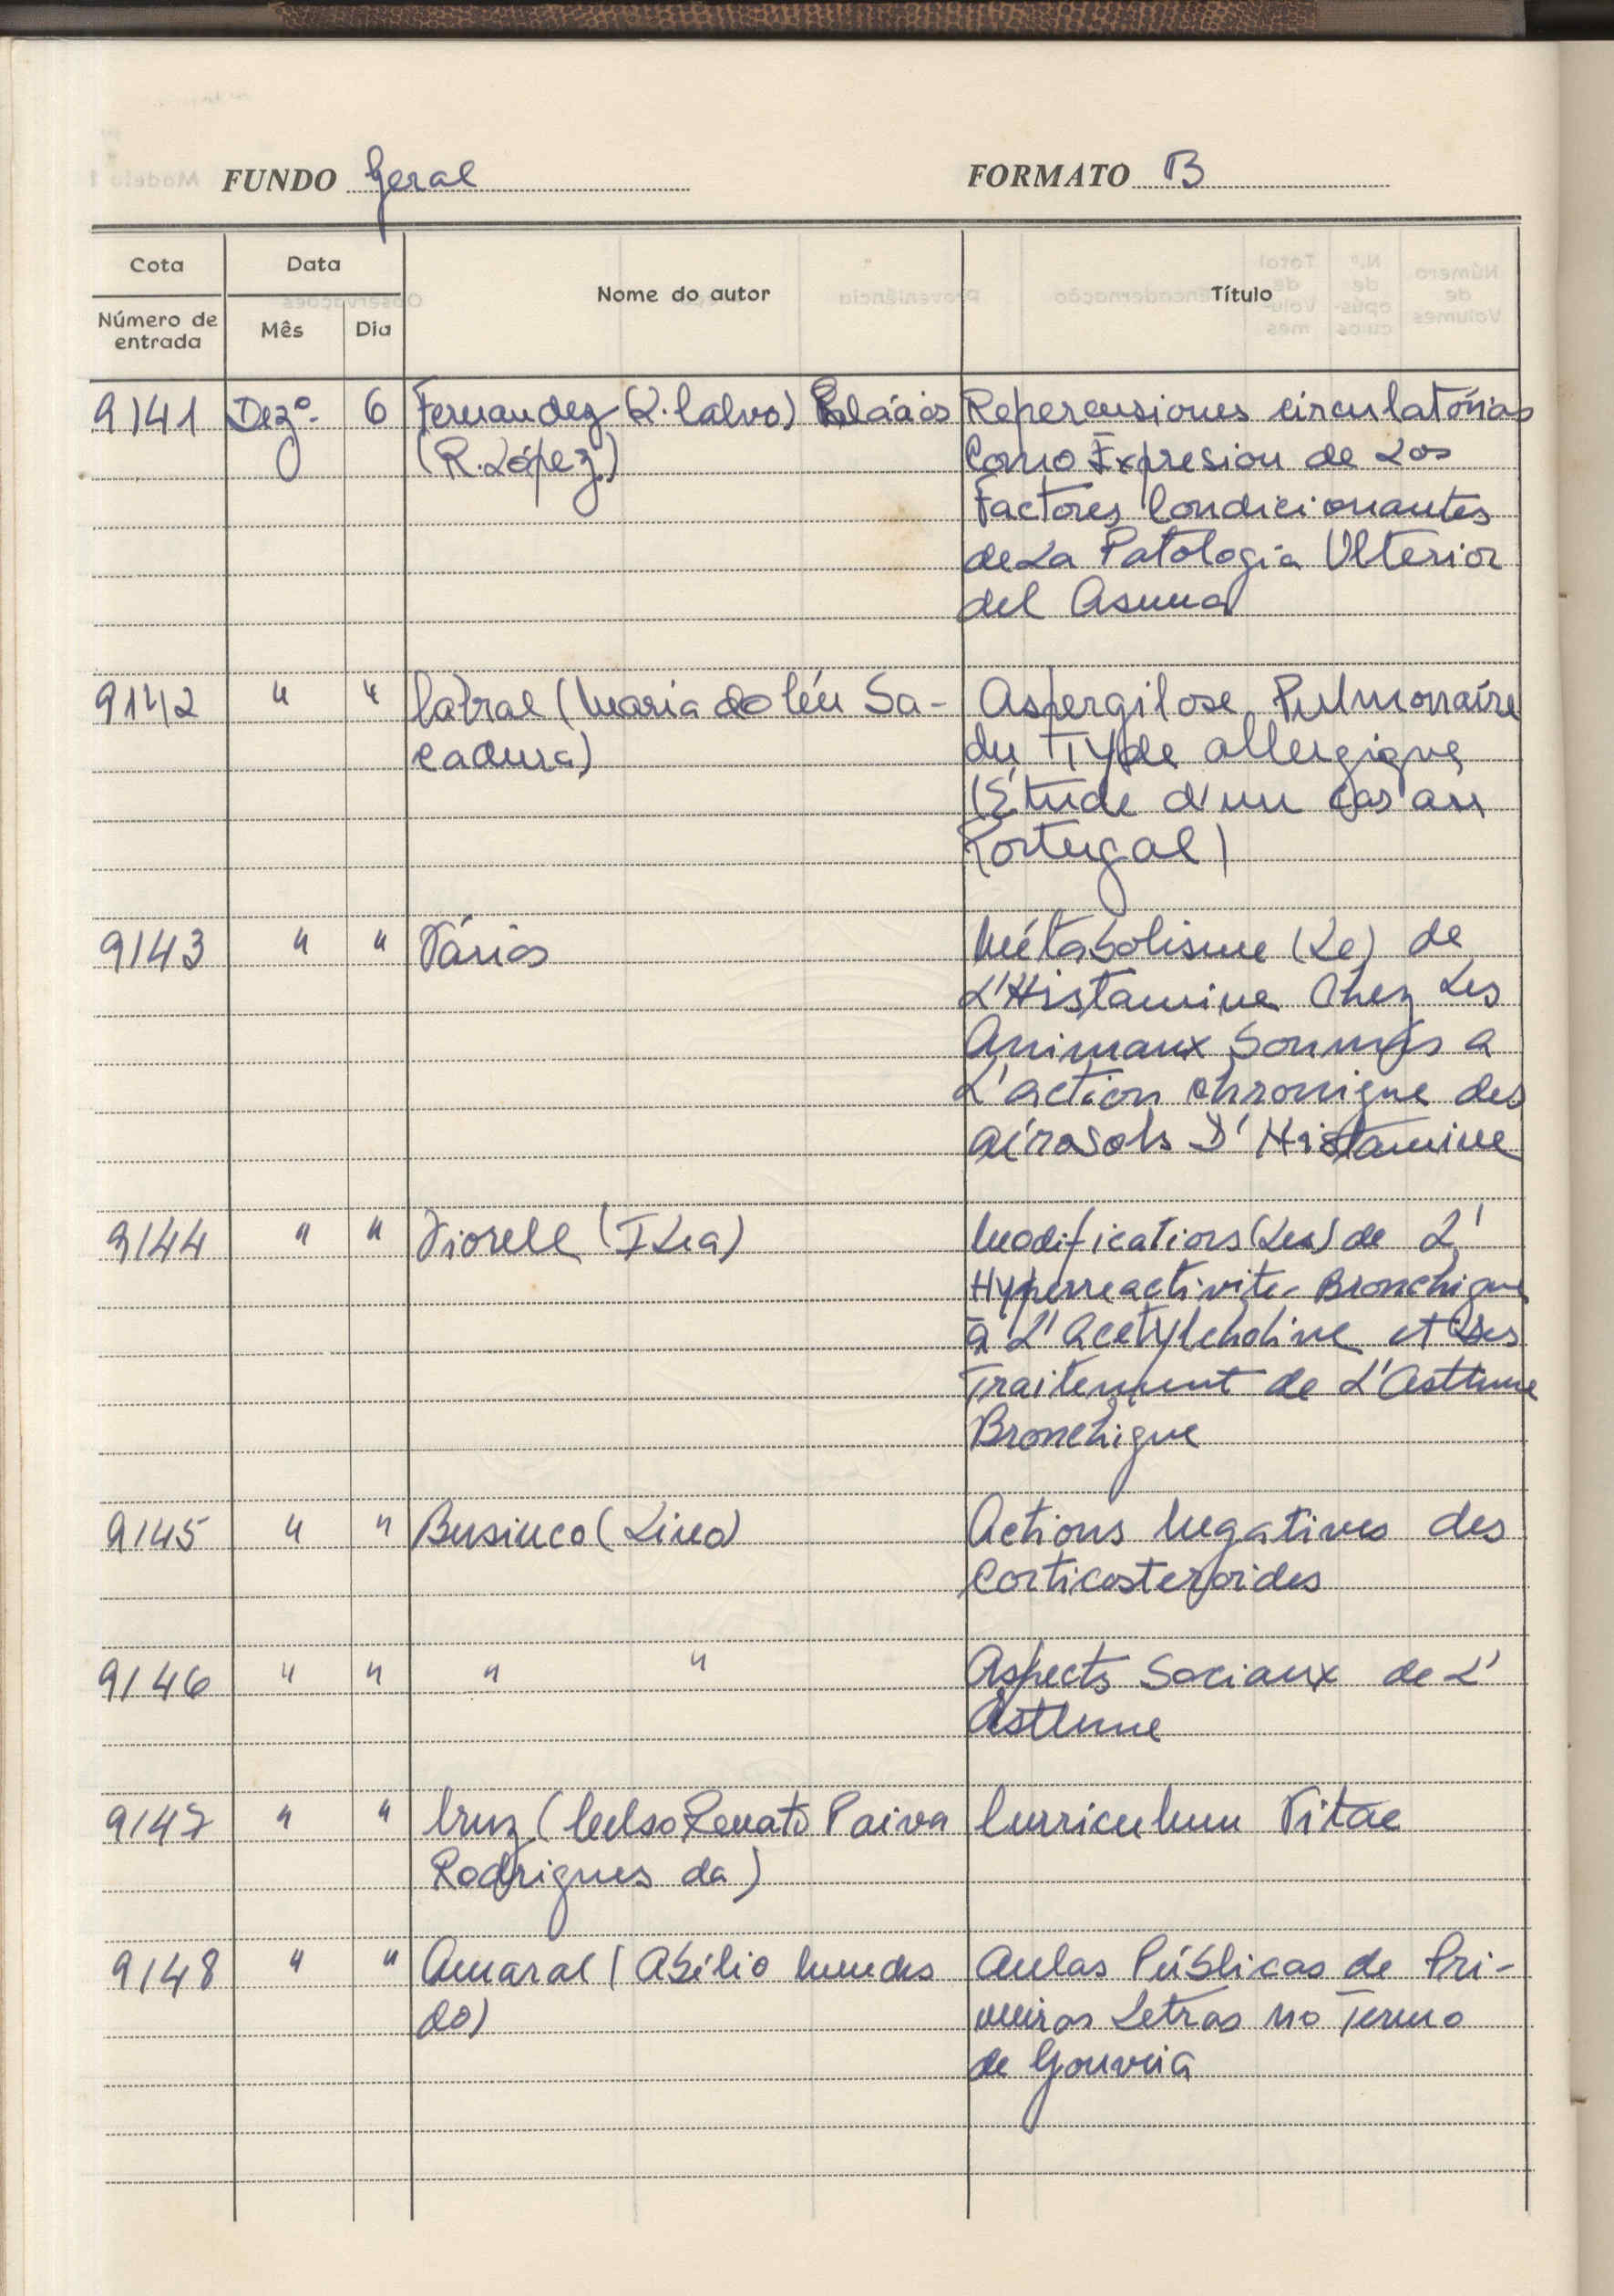 FUNDO Geral FORMATO B
Cota Data Nome do autor Título
Número de entrada Mês Dia
9141 Dezº 6 Fernandez (L. Calvo) Repercusiones circulatórias
(R. López) Como Expresion de Los
Factores Condicionantes
de La Patologia Ulterior
del Asma
9142 " " Cabral (Maria do Céu Sa- Aspergilose Pulmonaíre
cadura) du Type allergique
(Étude d'un cas au
Portugal)
9143 " " Vários Métabolisme (Le) de
L'Histamine Chez Les
Animaux Soumis a
L'action chronique des
aírosols D'Histamine
9144 " " Viorele Modifications (Les) de L'
Hyperreactivite Bronchique
à L'Acetylcholine et
Traitement de L'Asthme
Bronchique
9145 " " Businco (Lino) Actions Negatives des
Corticosteroides
9146 " " " " Aspects Sociaux de L'
Asthme
9147 " " Cruz (Celso Renato Paiva Curriculum Vitae
Rodrigues da)
9148 " " Amaral (Abílio Mendes Aulas Públicas de Pri-
do) meiras Letras no Termo
de Gouveia